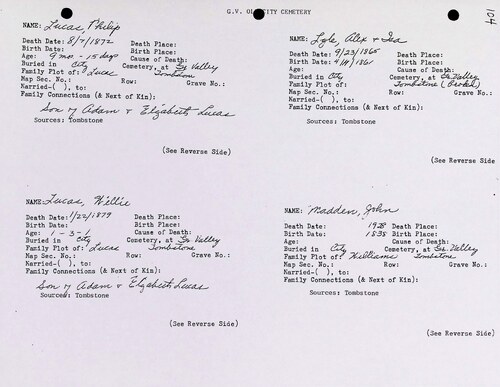 G.V. OLD CITY CEMETERY
104
NAME: Lucas, Philip
Death Date: 8/7/1872 Death Place:
Birth Date: Birth Place:
Age: 9 mo - 15 days Cause of Death:
Buried in City Cemetery, at Gs Valley
Family Plot of: Lucas Tombstone
Map Sec. No.: Row: Grave No.:
Karried-( ), to:
Family Connections (& Next of Kin):
Son of Adam & Elizabeth Lucas
Sources: Tombstone
(See Reverse Side)
NAME: Lyle, Alex & Isa
Death Date: 9/23/1865 Death Place:
Birth Date: 4/14/1861 Birth Place:
Age: Cause of Death:
Buried in City Cemetery, at Gs. Valley
Family Plot of: Tombstone (Broken)
Map Sec. No.: Row: Grave No.:
Karried-( ), to:
Family Connections (& Next of Kin):
Sources: Tombstone
(See Reverse Side)
NAME: Lucas, Willie
Death Date: 1/22/1879 Death Place:
Birth Date: Birth Place:
Age: 1 - 3 - 1 Cause of Death:
Buried in City Cemetery, at Gs. Valley
Family Plot of: Lucas Tombstone
Map Sec. No.: Row: Grave No.:
Karried-( ), to:
Family Connections (& Next of Kin):
Son of Adam & Elizabeth Lucas
Sources: Tombstone
(See Reverse Side)
NAME: Madden, John
Death Date: 1928 Death Place:
Birth Date: 1838 Birth Place:
Age: Cause of Death:
Buried in City Cemetery, at Gs. Valley
Family Plot of: Williams Tombstone
Map Sec. No.: Row: Grave No.:
Karried-( ), to:
Family Connections (& Next of Kin):
Sources: Tombstone
(See Reverse Side)